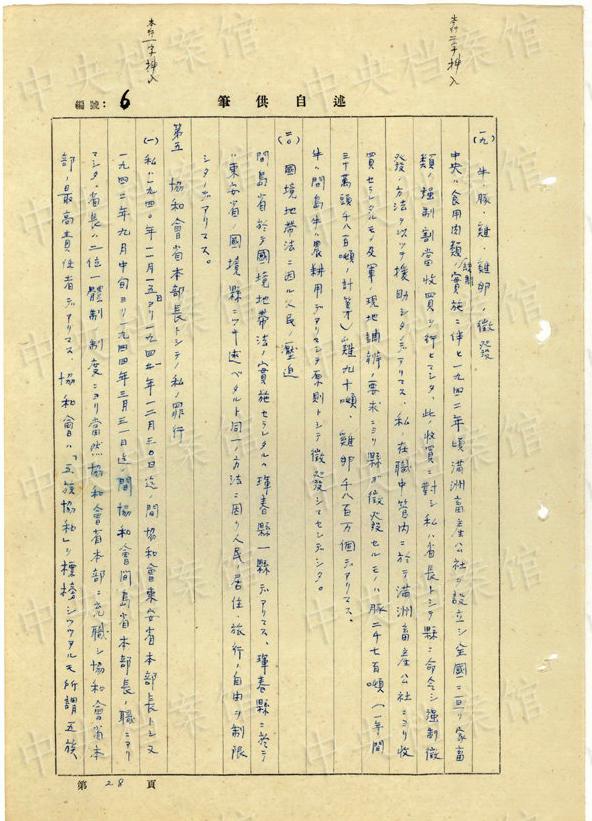 本行二字挿入
本行一字挿入
述自供筆
編號：6
(一九) 牛豚、雞雞卵ノ徴發
中央ノ食用肉類ノ統制實施ニ伴ヒ一九四二年頃滿洲畜産公社ヲ設立シ全國ニ亘リ家畜
類ノ強制割當收買ヲ行ヒマシタ、此ノ收買ニ對シ私ハ省長トシテ縣ニ命令シ強制徴
發ノ方法ヲ以ツテ援助シタノデアリマス、私ノ在職中管内ニ於テ滿洲畜産公社ニヨリ收
買セラレタルモノ及軍ノ現地調辨ノ要求ニヨリ縣ガ徴發セルモノハ豚二千七百噸（一年ノ間
三十萬頭千八百噸ノ計算）雞九十噸、雞卵千八百万個デアリマス。
牛ハ間島牛ハ農耕用デアリマセンデ原則トシテ徴發シマセンデシタ。
(二〇) 國境地帶法ニ因ル人民ノ壓迫
間島省ニ於テ國境地帶法ノ實施セラレタルハ琿春縣一縣デアリマス、琿春縣ニ於テ
ハ東安省ノ國境縣ニツキ述ベタルト同一ノ方法ニ因リ人民ノ居住旅行ノ自由ヲ制限
シタノデアリマス。
第五 協和會省本部長トシテノ私ノ罪行
(一) 私ハ一九四〇年一一月一五日ヨリ一九四一年一二月三〇日迄ノ間協和會東安省本部長トシ又
一九四二年九月中旬ヨリ一九四四年三月三一日迄ノ間協和會間島省本部長ノ職ニアリ
マシタ、省長ハ二位一體制ノ制度ニヨリ當然協和會省本部ニ充職シ協和會省本
部ノ最高責任者デアリマス、協和會ハ「五族協和」ヲ標榜シツツアルモ所謂五族
第 28 頁
中央档案馆